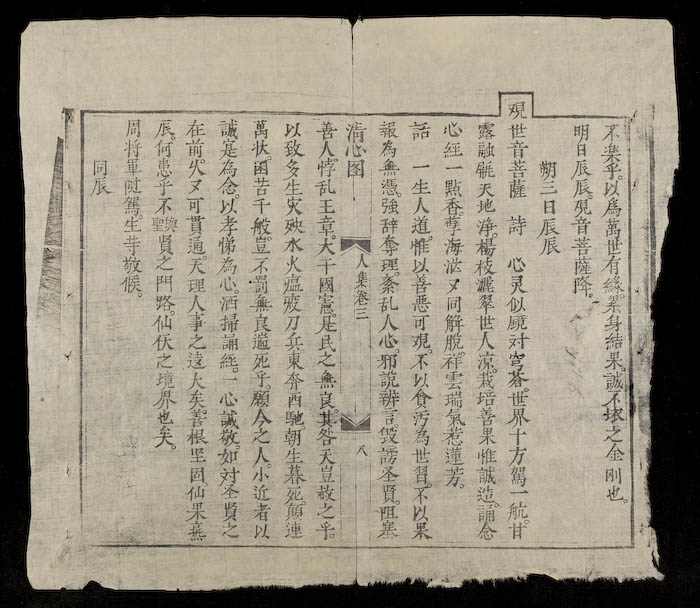 不樂乎。以爲萬世有緣。累身結果。誠不壞之金剛也。
明日辰辰。覌音菩薩降。
朔三日辰辰
覌世音菩薩　詩　心灵似鏡对穹蒼。世界十方駕一航。甘
露融䠶天地淨。楊枝灑翠世人涼。栽培善果惟誠造。誦念
心經一點香。孽海茫又同觧脫。祥雲瑞氣惹蓮芳。
話　一生人道。惟以善惡可覌。不以貪污為世習。不以果
報為無憑。強辞奪理。紊乱人心。邪說辨言。毀謗圣賢。阻塞
清心图
人集卷三
八
善人。悖乱王章。大干國憲。是民之無良。其咎天豈赦之乎。
以致多生灾殃。水火瘟疫。刀兵東奔西馳。朝生暮死。顛連
萬状。困苦千般。豈不罰無良遄死乎。願今之人。小近者以
誠寔為念。以孝悌為心。洒掃誦經。一心誠敬。如对圣賢之
在前。久又可貫通。天理人事之逺大矣。善根坚固。仙果蕪
辰。何患乎不與聖賢之門路。仙伏之境界也矣。
周将軍健駕。生等敬候。
同辰